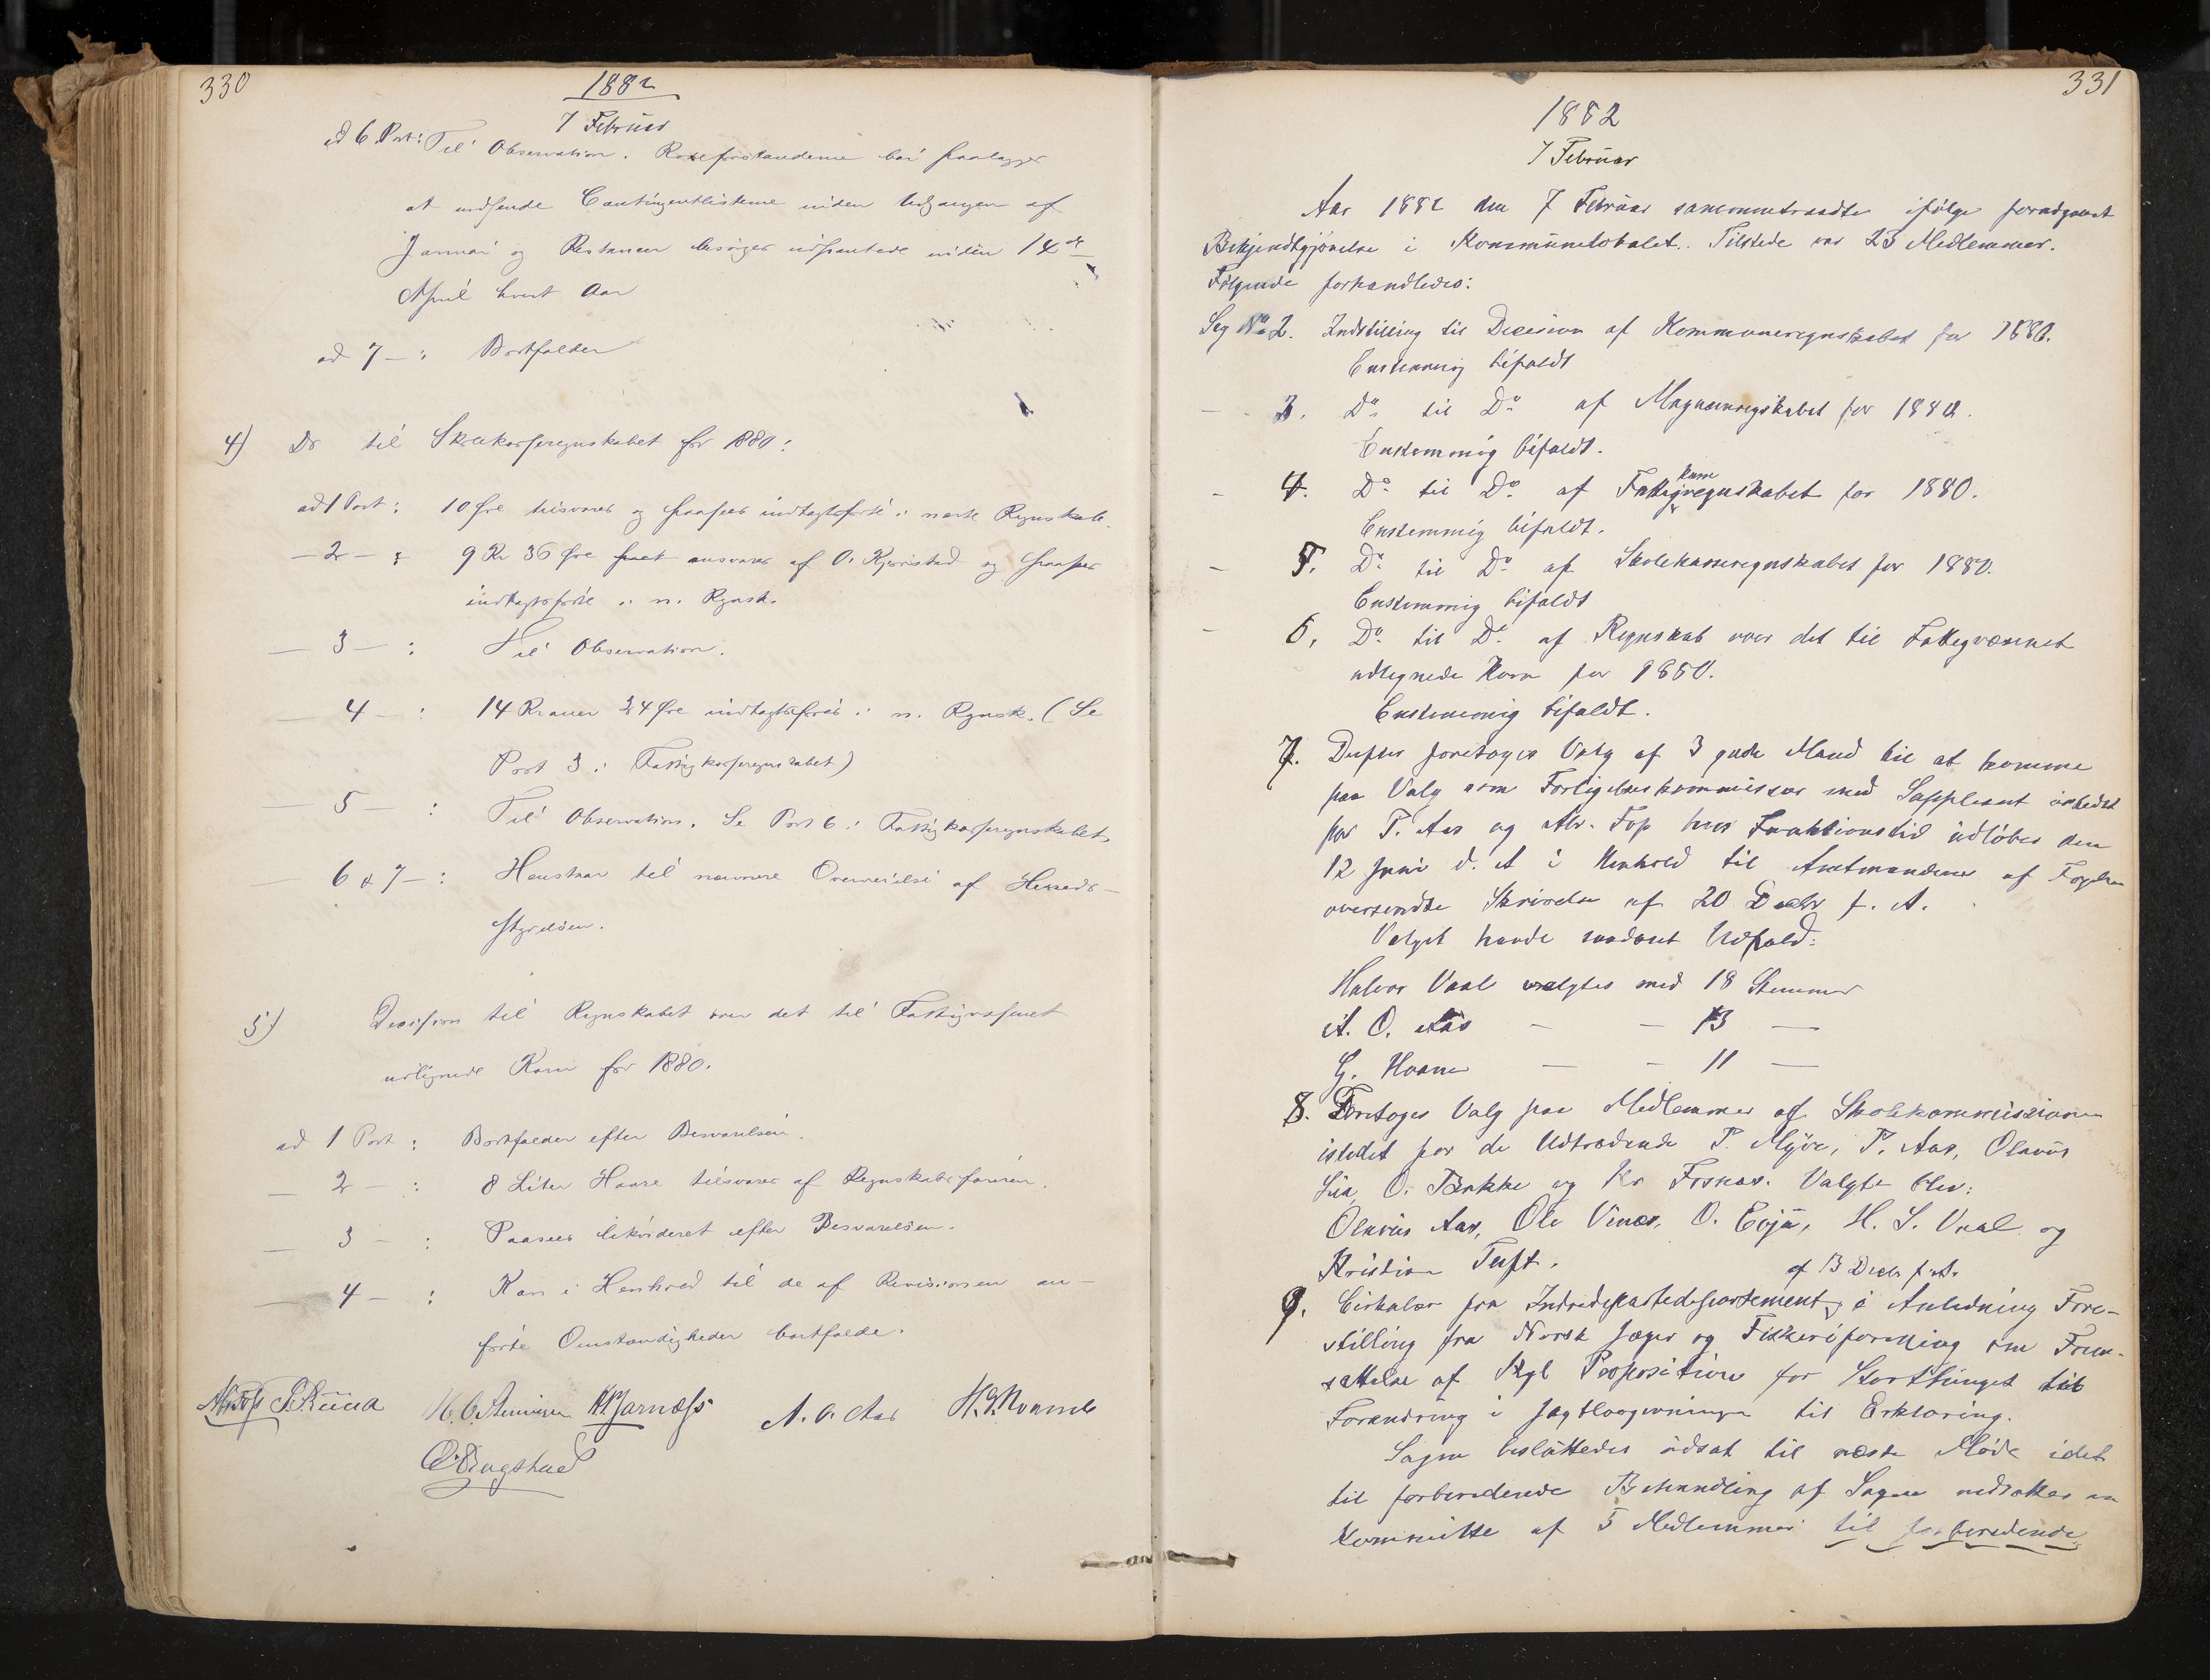 330
1882
7 Februar
ad 6 Post: Til Observation. Rodeforstanderne bør paalægges
at indsende Contingentlisterne inden Udgangen af
Januar og Restancen besørges udpantede inden 14de
April hvert Aar
ad 7 — : Bortfalder
4) Do til Skolekasseregnskabet for 1880:
ad 1 Post: 10 Øre tilsvares og paasees indtægtsført i næste Regnskab.
— 2 — : 9 Kr 36 Øre ansvares af O. Kjørstad og paasees
indtægtsført i n. Regnsk.
— 3 — : Til Observation.
— 4 — : 14 Kroner 24 Øre indtægtsføres i n. Regnsk. (Se
Post 3 i Fattigkasseregnskabet)
— 5 — : Til Observation. Se Post 6 i Fattigkasseregnskabet.
— 6 & 7 — : Henstaar til nærmere Overveielse af Herreds-
styrelsen.
5) Decision til Regnskabet over det til Fattigvæsenet
udlignede Korn for 1880.
ad 1 Post : Bortfalder efter Besvarelsen.
— 2 — : 8 Liter Havre tilsvares af Regnskabsføreren.
— 3 — : Paasees likvideret efter Besvarelsen.
— 4 — : Kan i Henhold til de af Revisionen an-
førte Omstændigheder bortfalde.
A. O. Aas
331
1882
7 Februar
Aar 1882 den 7 Februar sammentraadte ifølge forudgaaet
Bekjendtgjørelse i Kommunelokalet. Tilstede var 23 Medlemmer.
Følgende forhandledes:
Sag No 2. Indstilling til Decision af Kommuneregnskabet for 1880.
Enstemmig bifaldt
— 3. Do til Do af Magasinregnskabet for 1880.
Enstemmig bifaldt.
— 4. Do til Do af Fattigkasseregnskabet for 1880.
Enstemmig bifaldt.
— 5. Do til Do af Skolekasseregnskabet for 1880.
Enstemmig bifaldt
— 6. Do til Do af Regnskab over det til Fattigvæsenet
udlignede Korn for 1880.
Enstemmig bifaldt.
7. Derpaa foretoges Valg af 3 gode Mænd til at komme
paa Valg som Forligelseskommissær med Suppleant istedet
for P. Aas og Abr. Fos hvis Funktionstid udløber den
12 Juni d. A i Henhold til Amtmandens af Fogden
oversendte Skrivelse af 20 Decbr f. A.
Valget havde saadant Udfald:
Halvor Vaal valgtes med 18 Stemmer
A. O. Aas — — 13 —
G. Hvam — — 11 —
8. Foretoges Valg paa Medlemmer af Skolekommissionen
istedet for de Udtrædende P. Myre, P. Aas, Olavus
Lia, O. Bakke og Kr Fosnæs. Valgte blev:
Olavus Aas, Ole Vinæs, O. Evju, H. S. Vaal og
Kristian Tuft.
9. Cirkulær fra Indredepartementet af 13 Decbr f. A. i Anledning Fore-
stilling fra Norsk Jæger og Fiskeriforening om Frem-
sættelse af Kgl Proposition for Storthinget til
Forandring i Jagtlovgivningen til Erklæring.
Sagen besluttedes udsat til næste Møde idet
til forberedende Behandling af Sagen nedsattes en
Kommitte af 5 Medlemmer til forberedende